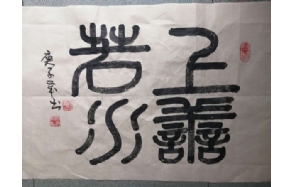 上善
若水
庚子年书